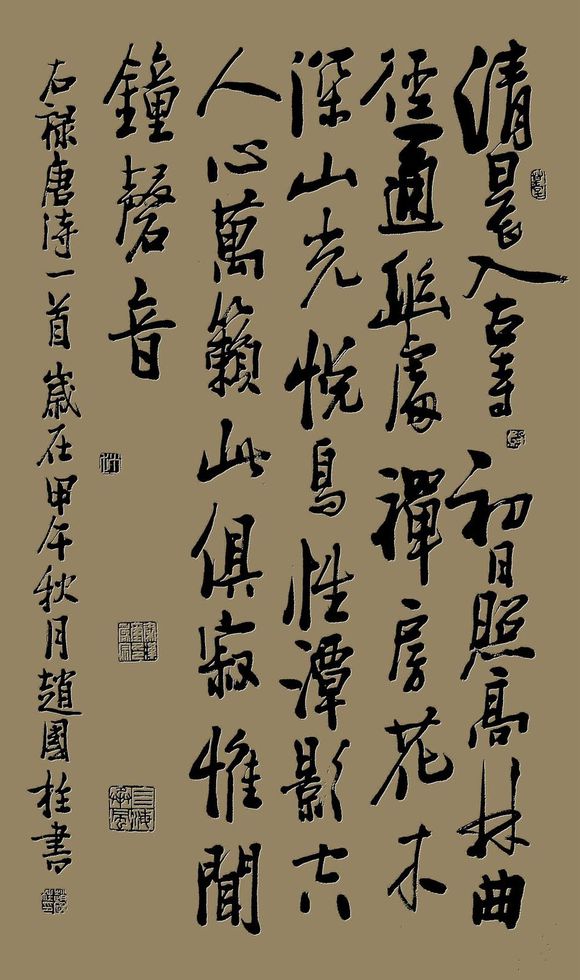 清晨入古寺初日照高林曲
徑通幽處禪房花木
深山光悅鳥性潭影空
人心萬籟此俱寂惟聞
鐘磬音
右祿唐詩一首歲在甲午秋月趙國柱書